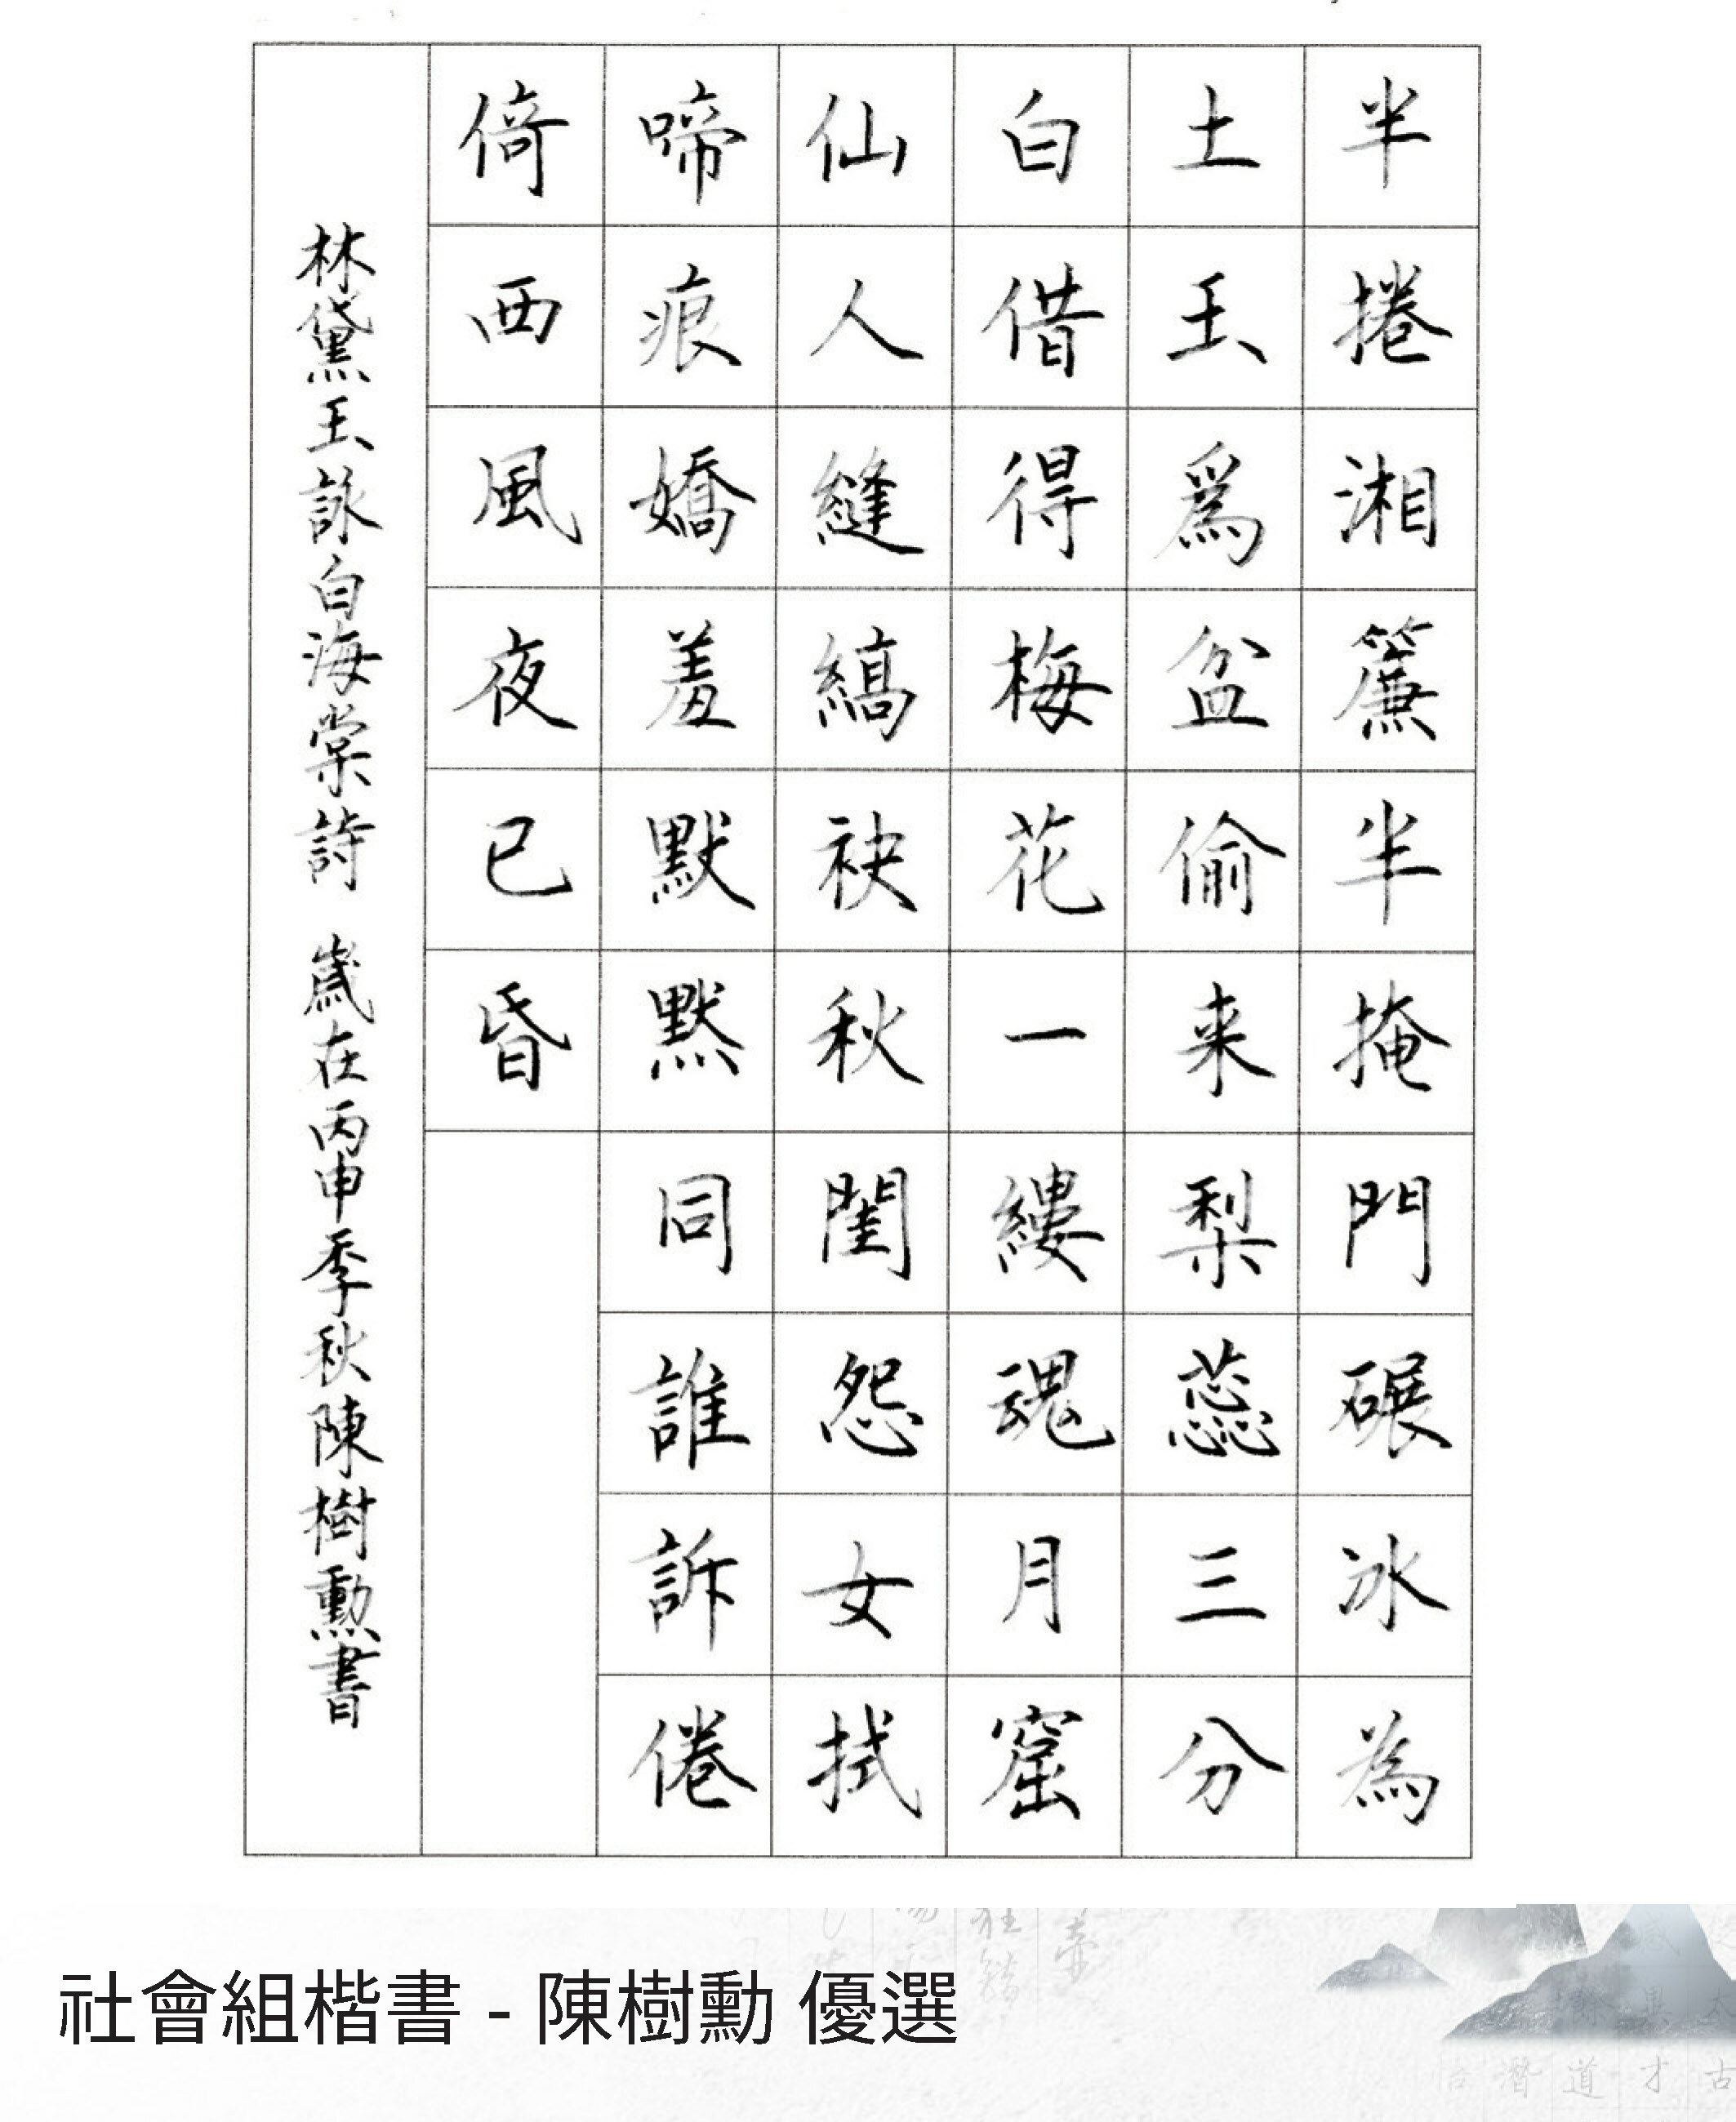 半捲湘簾半掩門碾冰為
土玉爲盆偷来梨蕊三分
白借得梅花一縷魂月窟
仙人縫縞袂秋閨怨女拭
啼痕嬌羞默黙同誰訴倦
倚西風夜已昏
林黛玉詠白海棠詩 歲在丙申季秋陳樹勳書
社會組楷書 - 陳樹勳 優選